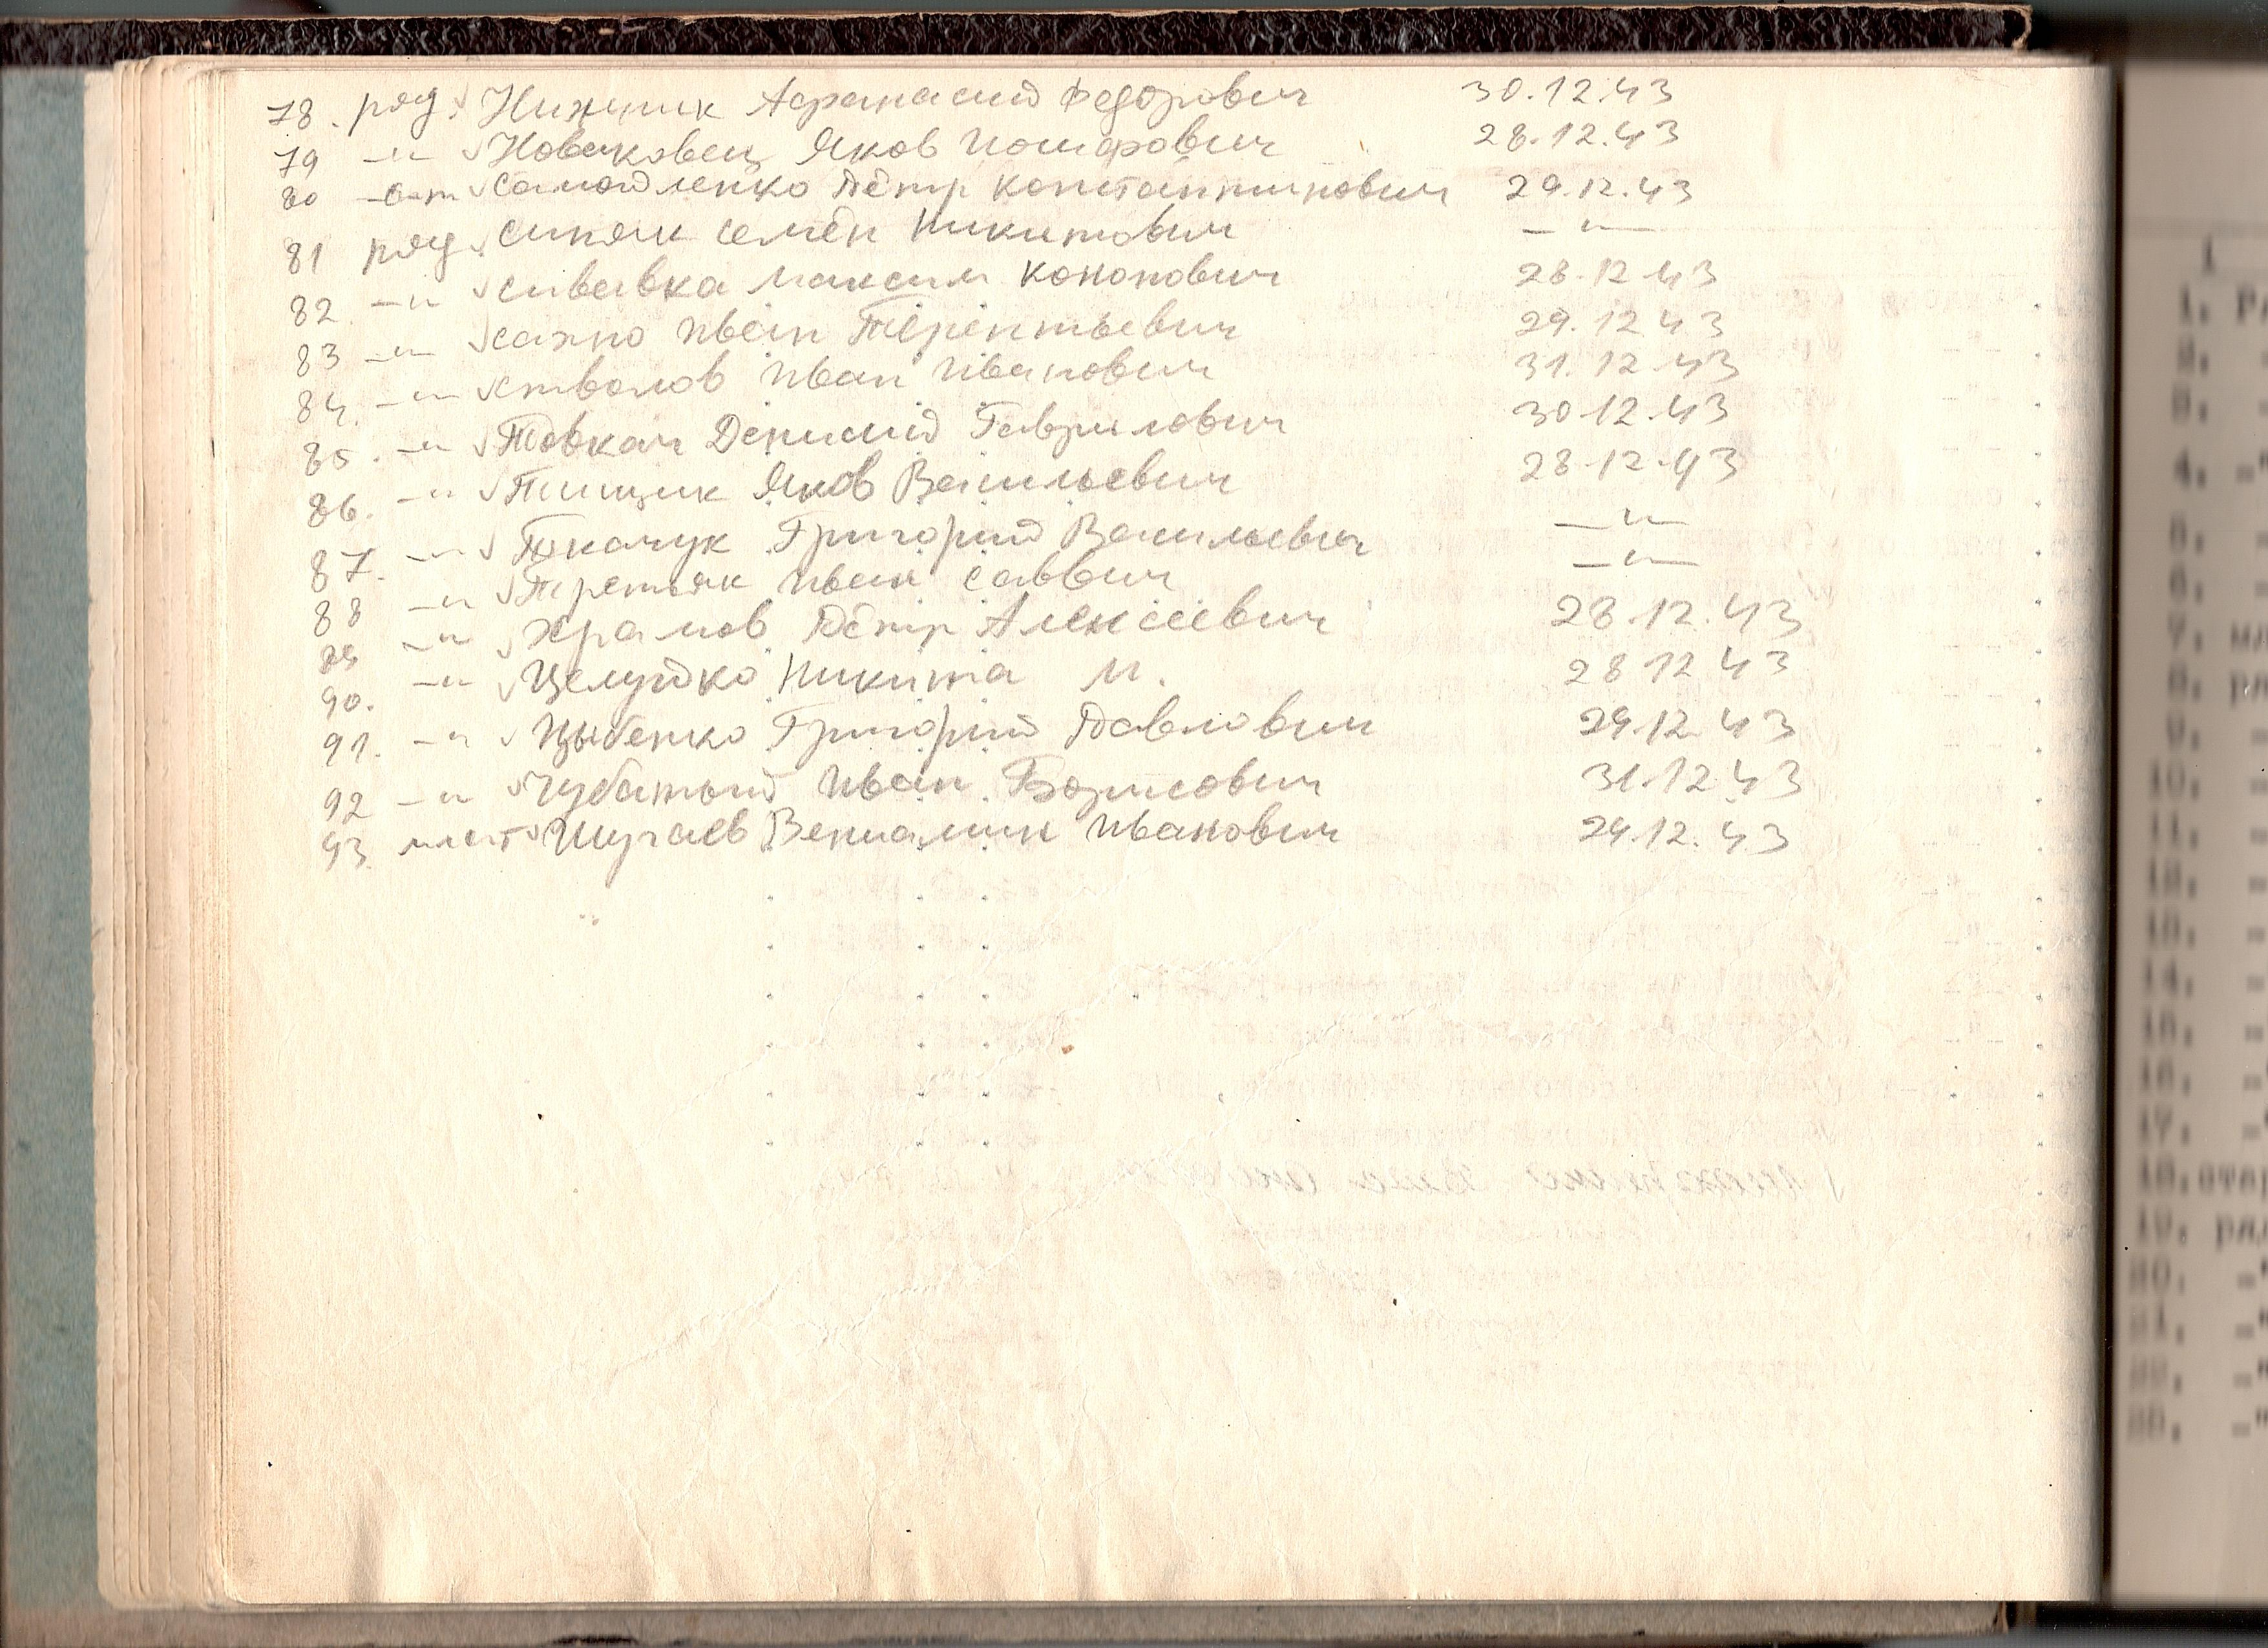 78. ряд. √ Нижник Афанасий Федорович 30.12.43
79 —"— √ Новаковец Яков 28.12.43
80 √ Самойленко Пётр Константинович 29.12.43
81 ряд. √ Синяк Семён Никитович —"—
82. —"— √ Сивавка Максим Кононович 28.12.43
83 —"— √ Сахно Иван Терентьевич 29.12 43
84. —"— √ Стволов Иван Иванович 31.12.43
85. —"— √ Товкач Денисий Гаврилович 30.12.43
86. —"— √ Тищик Яков Васильевич 28.12.43
87. —"— √ Ткачук Григорий Васильевич —"—
88 —"— √ Третьяк Иван Саввич —"—
89 —"— √ Храмов Пётр Алексеевич 28.12.43
90. —"— √ Целуйко Никита М. 28 12 43
91. —"— √ Цыбенко Григорий Павлович 29.12.43
92 —"— √ Чубатый Иван Борисович 31.12.43
93. мл.с-т √ Шугаев Вениамин Иванович 29.12.43
1
1. Р
2.
3.
4. -"
5. -
6. -
7. мл
8. ря
9. -
10. -
11. -
12. -
13. -
14. -
15. -
16. -"
17. -"
18. стар
19. ряд
20. -"
21. -"
22. -"
23. -"